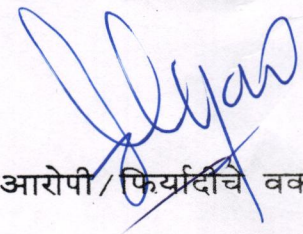 आरोपी / फिर्यादीचे वक